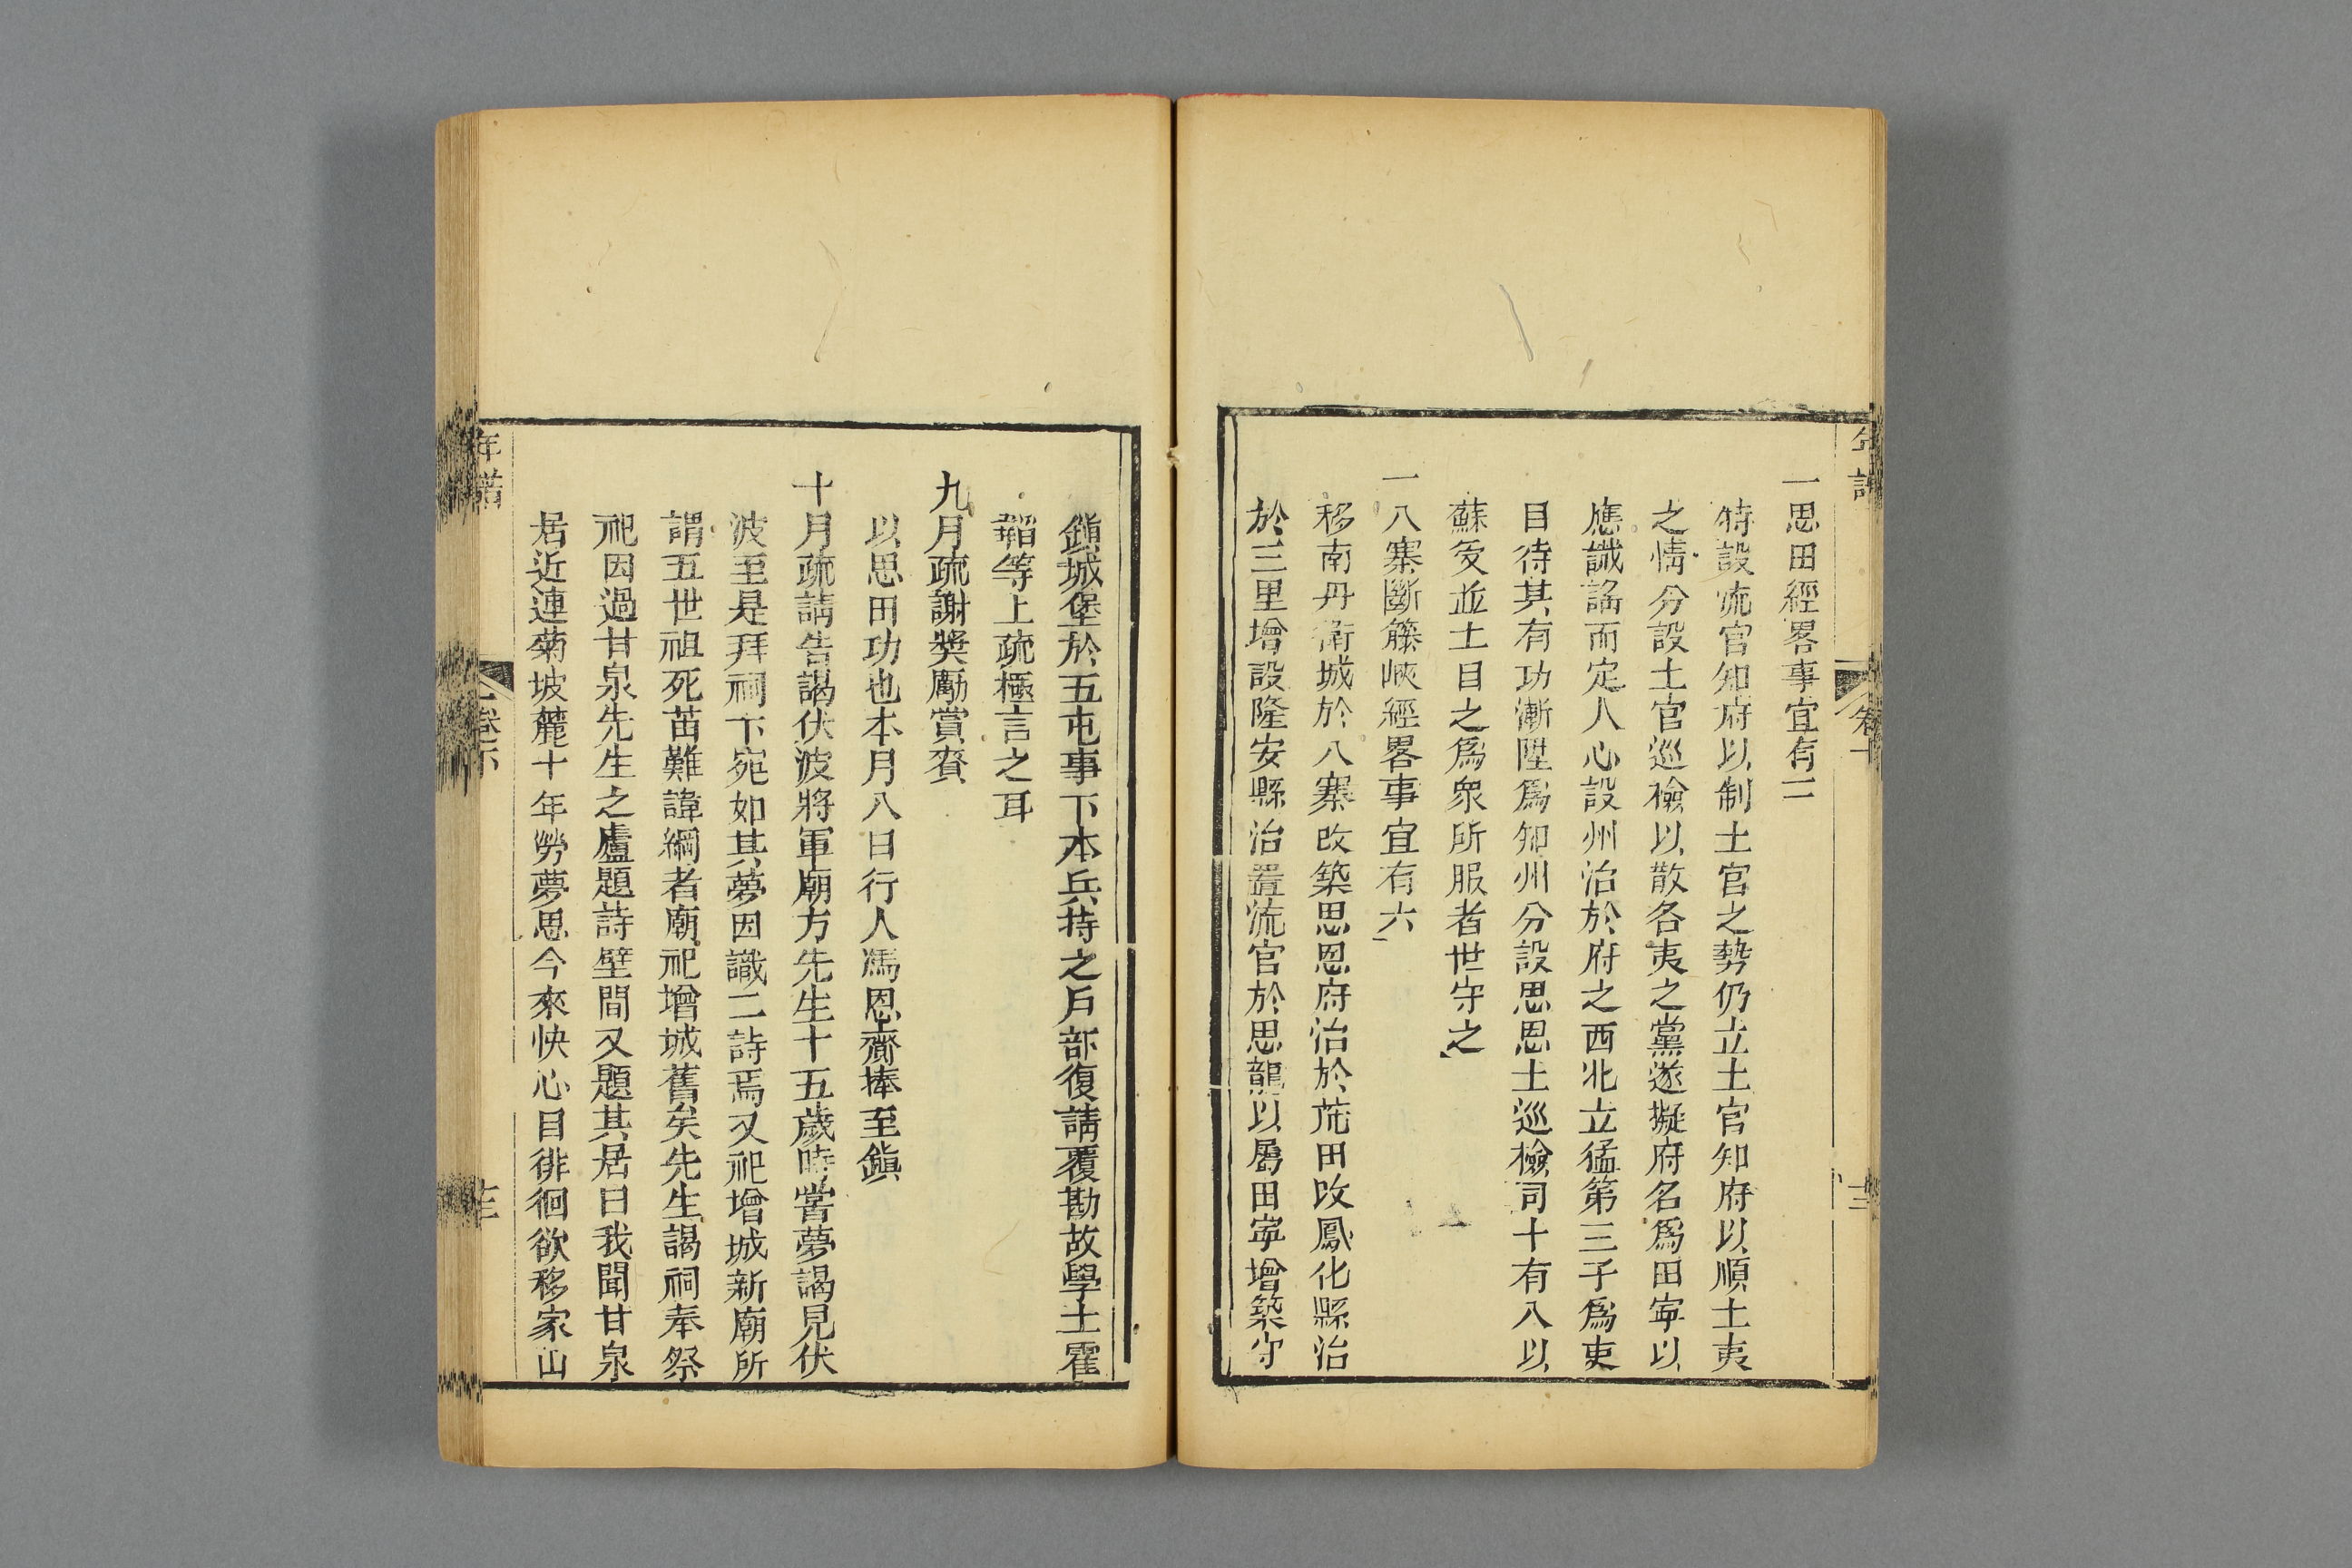 一思田經畧事宜有三
特設流官知府以制土官之勢仍立土官知府以順土夷
之情分設土官巡檢以散各夷之黨遂擬府名爲田寧以
應讖謠而定人心設州治於府之西北立猛第三子爲吏
目待其有功漸陞爲知州分設思恩土巡檢司十有八以
蘇受並土目之爲衆所服者世守之
一八寨斷籐峽經畧事宜有六
移南丹衛城於八寨改築思恩府治於荒田改鳳化縣治
於三里增設隆安縣治置流官於思龍以屬田寧增築守
鎮城堡於五屯事下本兵持之戶部復請覆勘故學士霍
韜等上疏極言之耳
九月疏謝獎勵賞賚
以思田功也本月八日行人馮恩齎捧至鎮
十月疏請告謁伏波將軍廟方先生十五歲時嘗夢謁見伏
波至是拜祠下宛如其夢因識二詩焉又祀增城新廟所
謂五世祖死苗難諱綱者廟祀增城舊矣先生謁祠奉祭
祀因過甘泉先生之廬題詩壁間又題其居曰我聞甘泉
居近連菊坡麓十年勞夢思今來快心目徘徊欲移家山
年譜
卷下